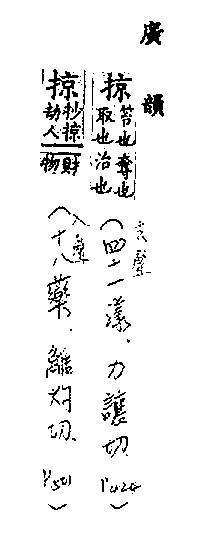 廣韻
掠 笞也奪也取也治也 (去聲 四十一漾、力讓切 P424)
掠 抄掠劫人財物 (入聲 十八藥、離灼切 P501)